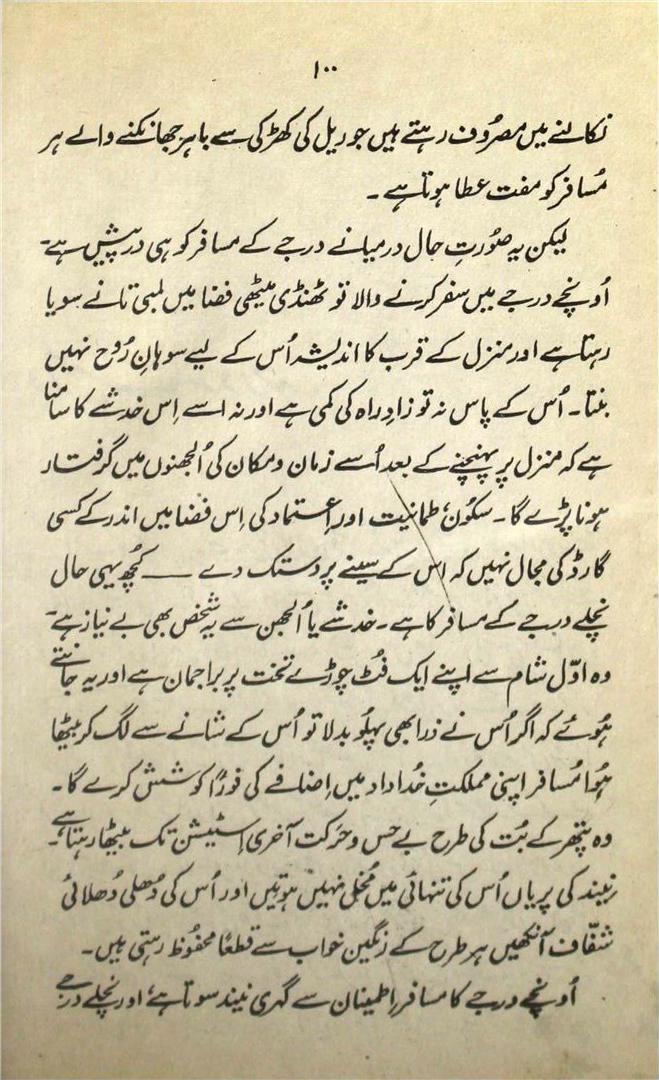 ۱۰۰
نکالنے میں مصرُوف رہتے ہیں جو ریل کی کھڑکی سے باہر جھانکنے والے ہر
مُسافر کو مفت عطا ہوتا ہے۔
لیکن یہ صُورتِ حال درمیانے درجے کے مسافر کو ہی درپیش ہے۔
اُونچے درجے میں سفر کرنے والا تو ٹھنڈی میٹھی فضا میں لمبی تانے سویا
رہتا ہے اور منزل کے قرب کا اندیشہ اُس کے لیے سوہانِ رُوح نہیں
بنتا۔ اُس کے پاس نہ تو زادِ راہ کی کمی ہے اور نہ اسے اِس خدشے کا سامنا
ہے کہ منزل پر پہنچنے کے بعد اُسے زمان و مکان کی اُلجھنوں میں گرفتار
ہونا پڑے گا۔ سکُون، طمانیت اور اِعتماد کی اِس فضا میں اندر کے کسی
گارڈ کی مجال نہیں کہ اُس کے سینے پر دستک دے —— کُچھ یہی حال
نچلے درجے کے مسافر کا ہے۔ خدشے یا اُلجھن سے یہ شخص بھی بے نیاز ہے۔
وہ اوّل شام سے اپنے ایک فُٹ چوڑے تخت پر براجمان ہے اور یہ جانتے
ہُوئے کہ اگر اُس نے ذرا بھی پہلُو بدلا تو اُس کے شانے سے لگ کر بیٹھا
ہُوا مُسافر اپنی مملکتِ خُداداد میں اِضافے کی فوراً کوشش کرے گا۔
وہ پتھر کے بُت کی طرح بے حس و حَرکت آخری اِسٹیشن تک بیٹھا رہتا ہے۔
نیند کی پریاں اُس کی تنہائی میں مُخل نہیں ہوتیں اور اُس کی دُھلی دُھلائی
شفّاف آنکھیں ہر طرح کے رنگین خواب سے قطعاً محفُوظ رہتی ہیں۔
اُونچے درجے کا مسافر اِطمینان سے گہری نیند سوتا ہے، اور نچلے درجے